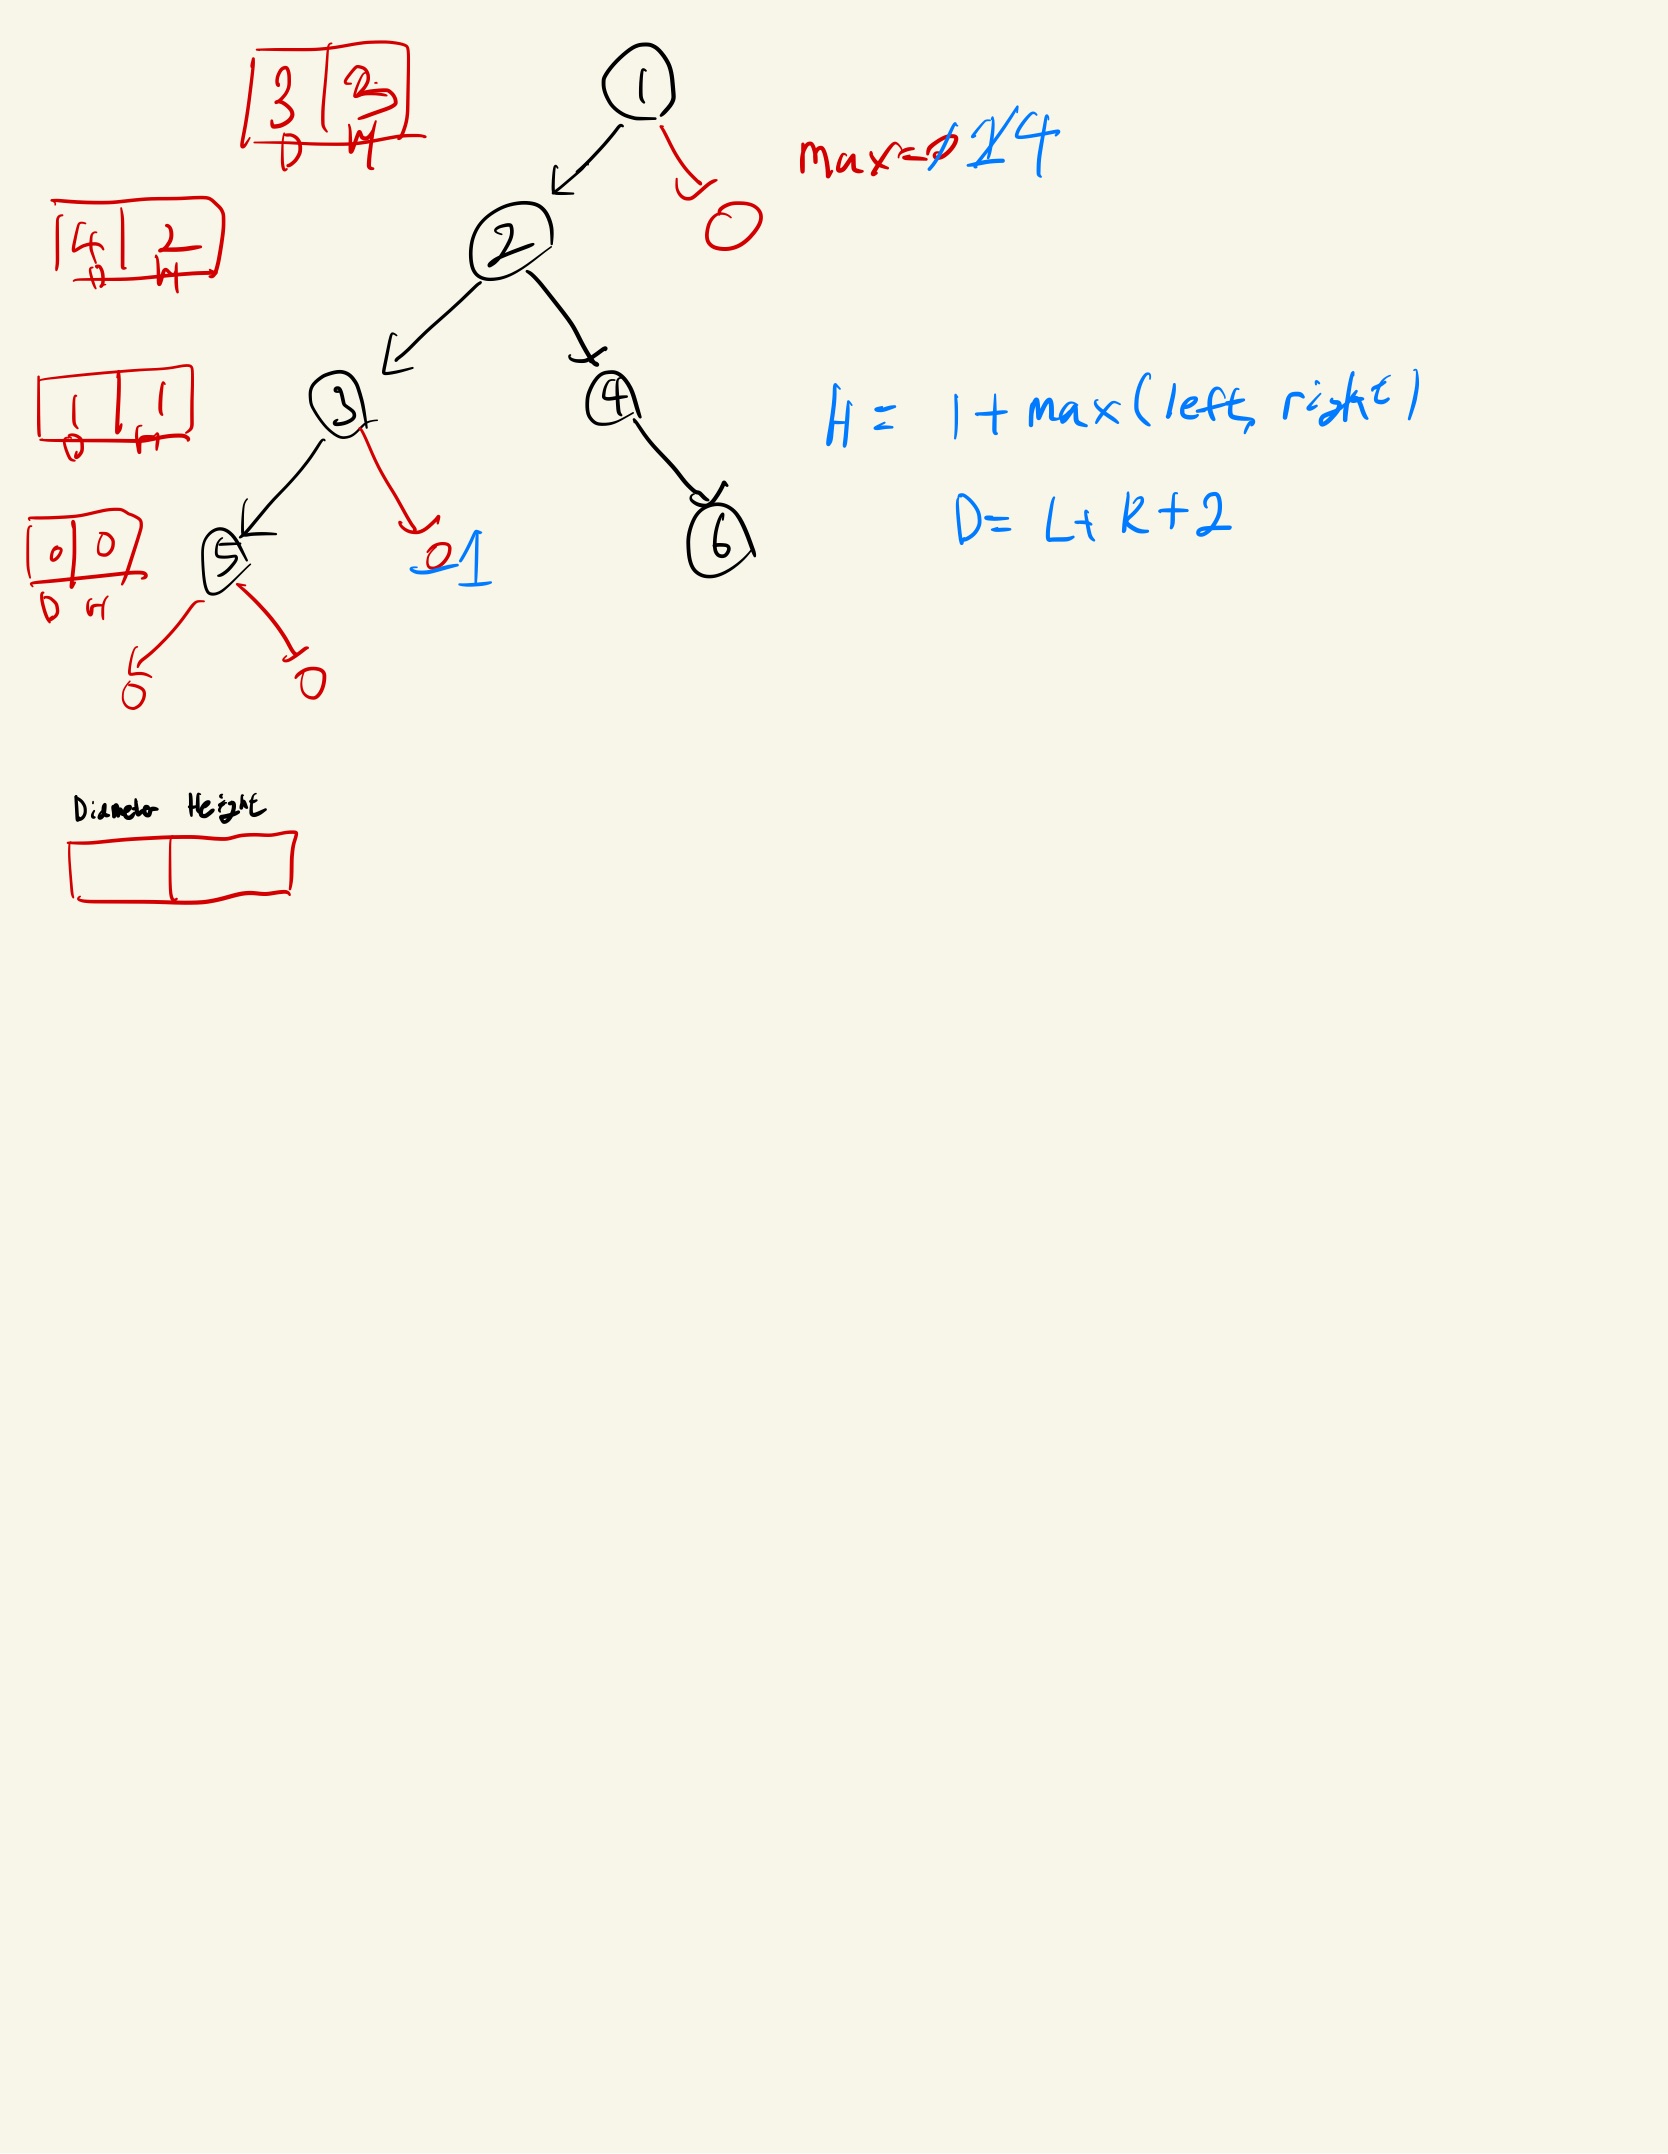 3 3
D H
1
max=0 1 4
4 2
D H
2
0
1 1
D H
3
4
H = 1 + max(left, right)
D = L + R + 2
0 0
D H
5
0 1
6
0
0
Diameter Height